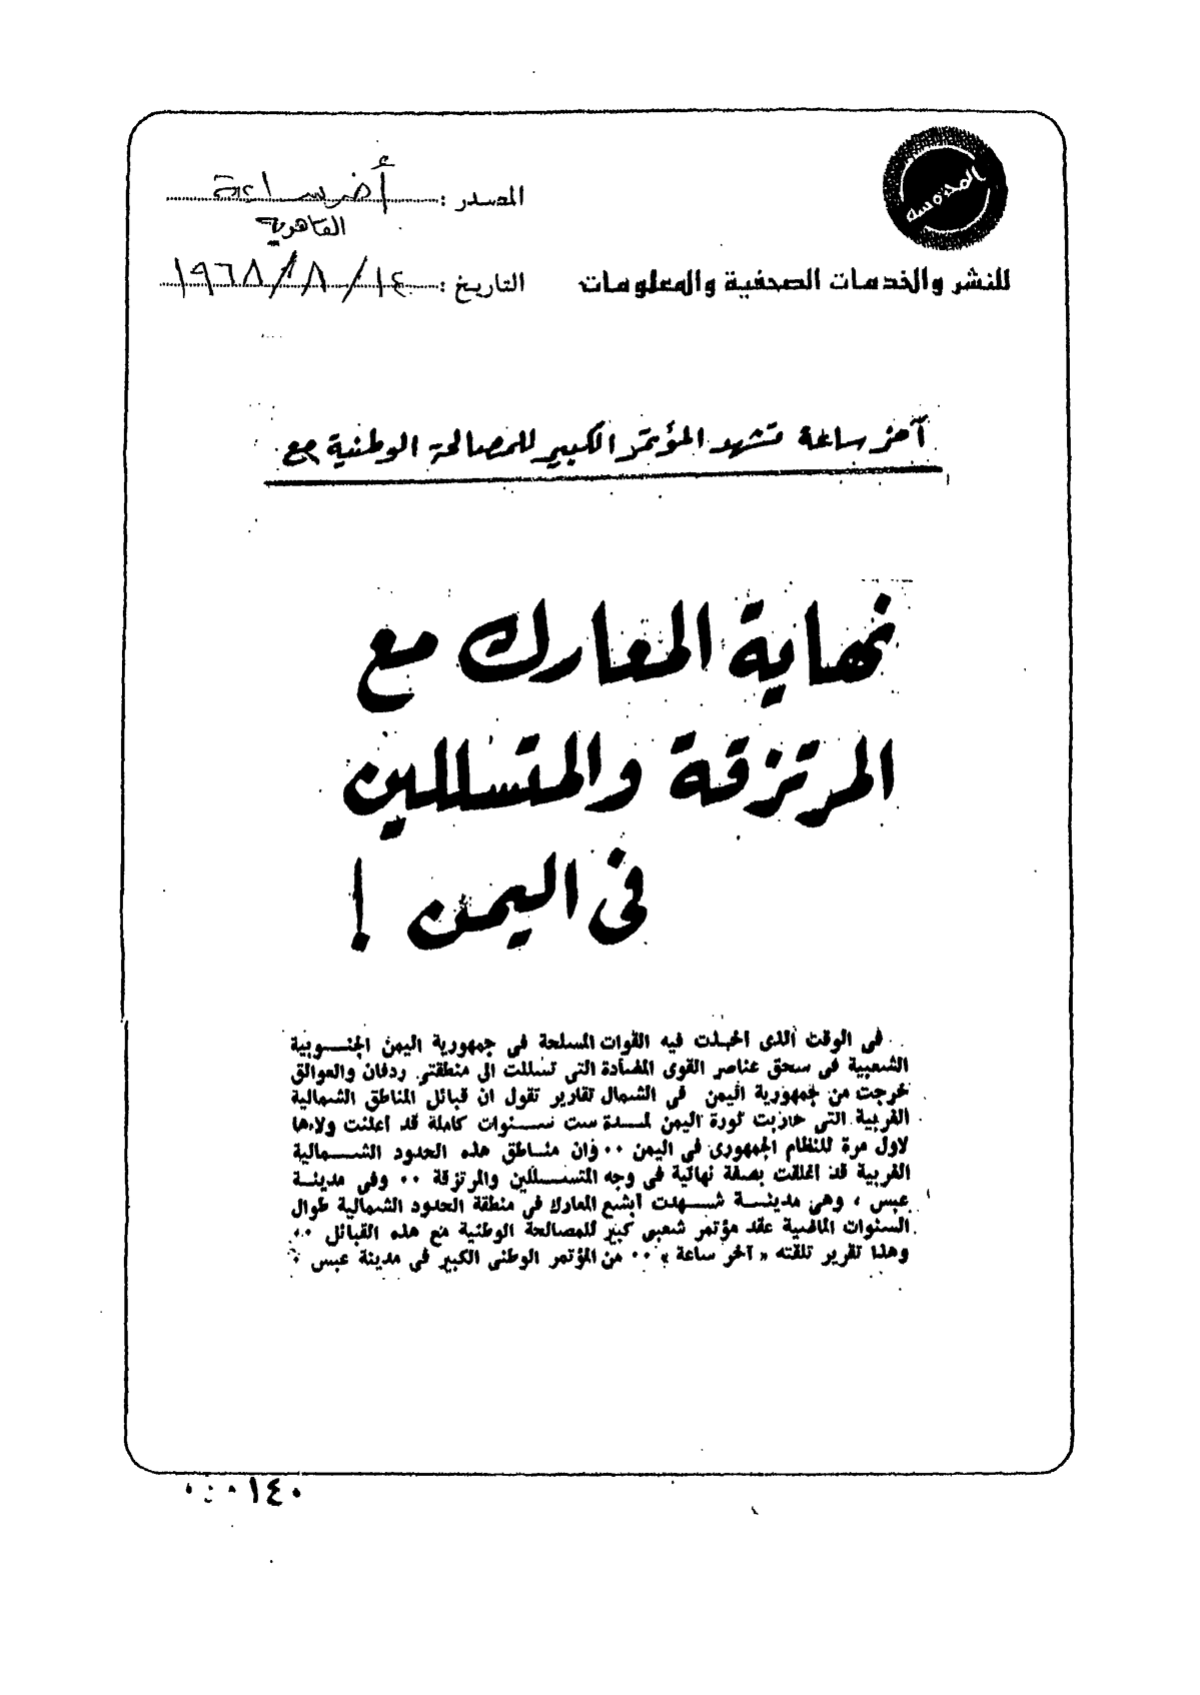 المحروسة
المصدر : أخر ساعة
القاهرية
للنشر والخدمات الصحفية والمعلومات
التاريخ : ١٤/٨/١٩٦٨
آخر ساعة تشهد المؤتمر الكبير للمصالحة الوطنية مع
نهاية المعارك مع
المرتزقة والمتسللين
فى اليمن !
.. فى الوقت الذى اخذت فيه القوات المسلحة فى جمهورية اليمن الجنـــوبية
الشعبية فى سحق عناصر القوى المضادة التى تسللت الى منطقتى ردفان والعوالق
خرجت من جمهورية اليمن فى الشمال تقارير تقول ان قبائل المناطق الشمالية
الغربية التى حاربت ثورة اليمن لمــدة ست ســنوات كاملة قد اعلنت ولاءها
لاول مرة للنظام الجمهورى فى اليمن .. وان منــاطق هذه الحدود الشــمالية
الغربية قد اغلقت بصفة نهائية فى وجه المتســللين والمرتزقة .. وفى مدينــة
عبس ، وهى مدينــة شــهدت ابشع المعارك فى منطقة الحدود الشمالية طوال
السنوات الماضية عقد مؤتمر شعبى كبير للمصالحة الوطنية مع هذه القبائل ..
وهذا تقرير تلقته « آخر ساعة » .. من المؤتمر الوطنى الكبير فى مدينة عبس .
٠٠٠١٤٠